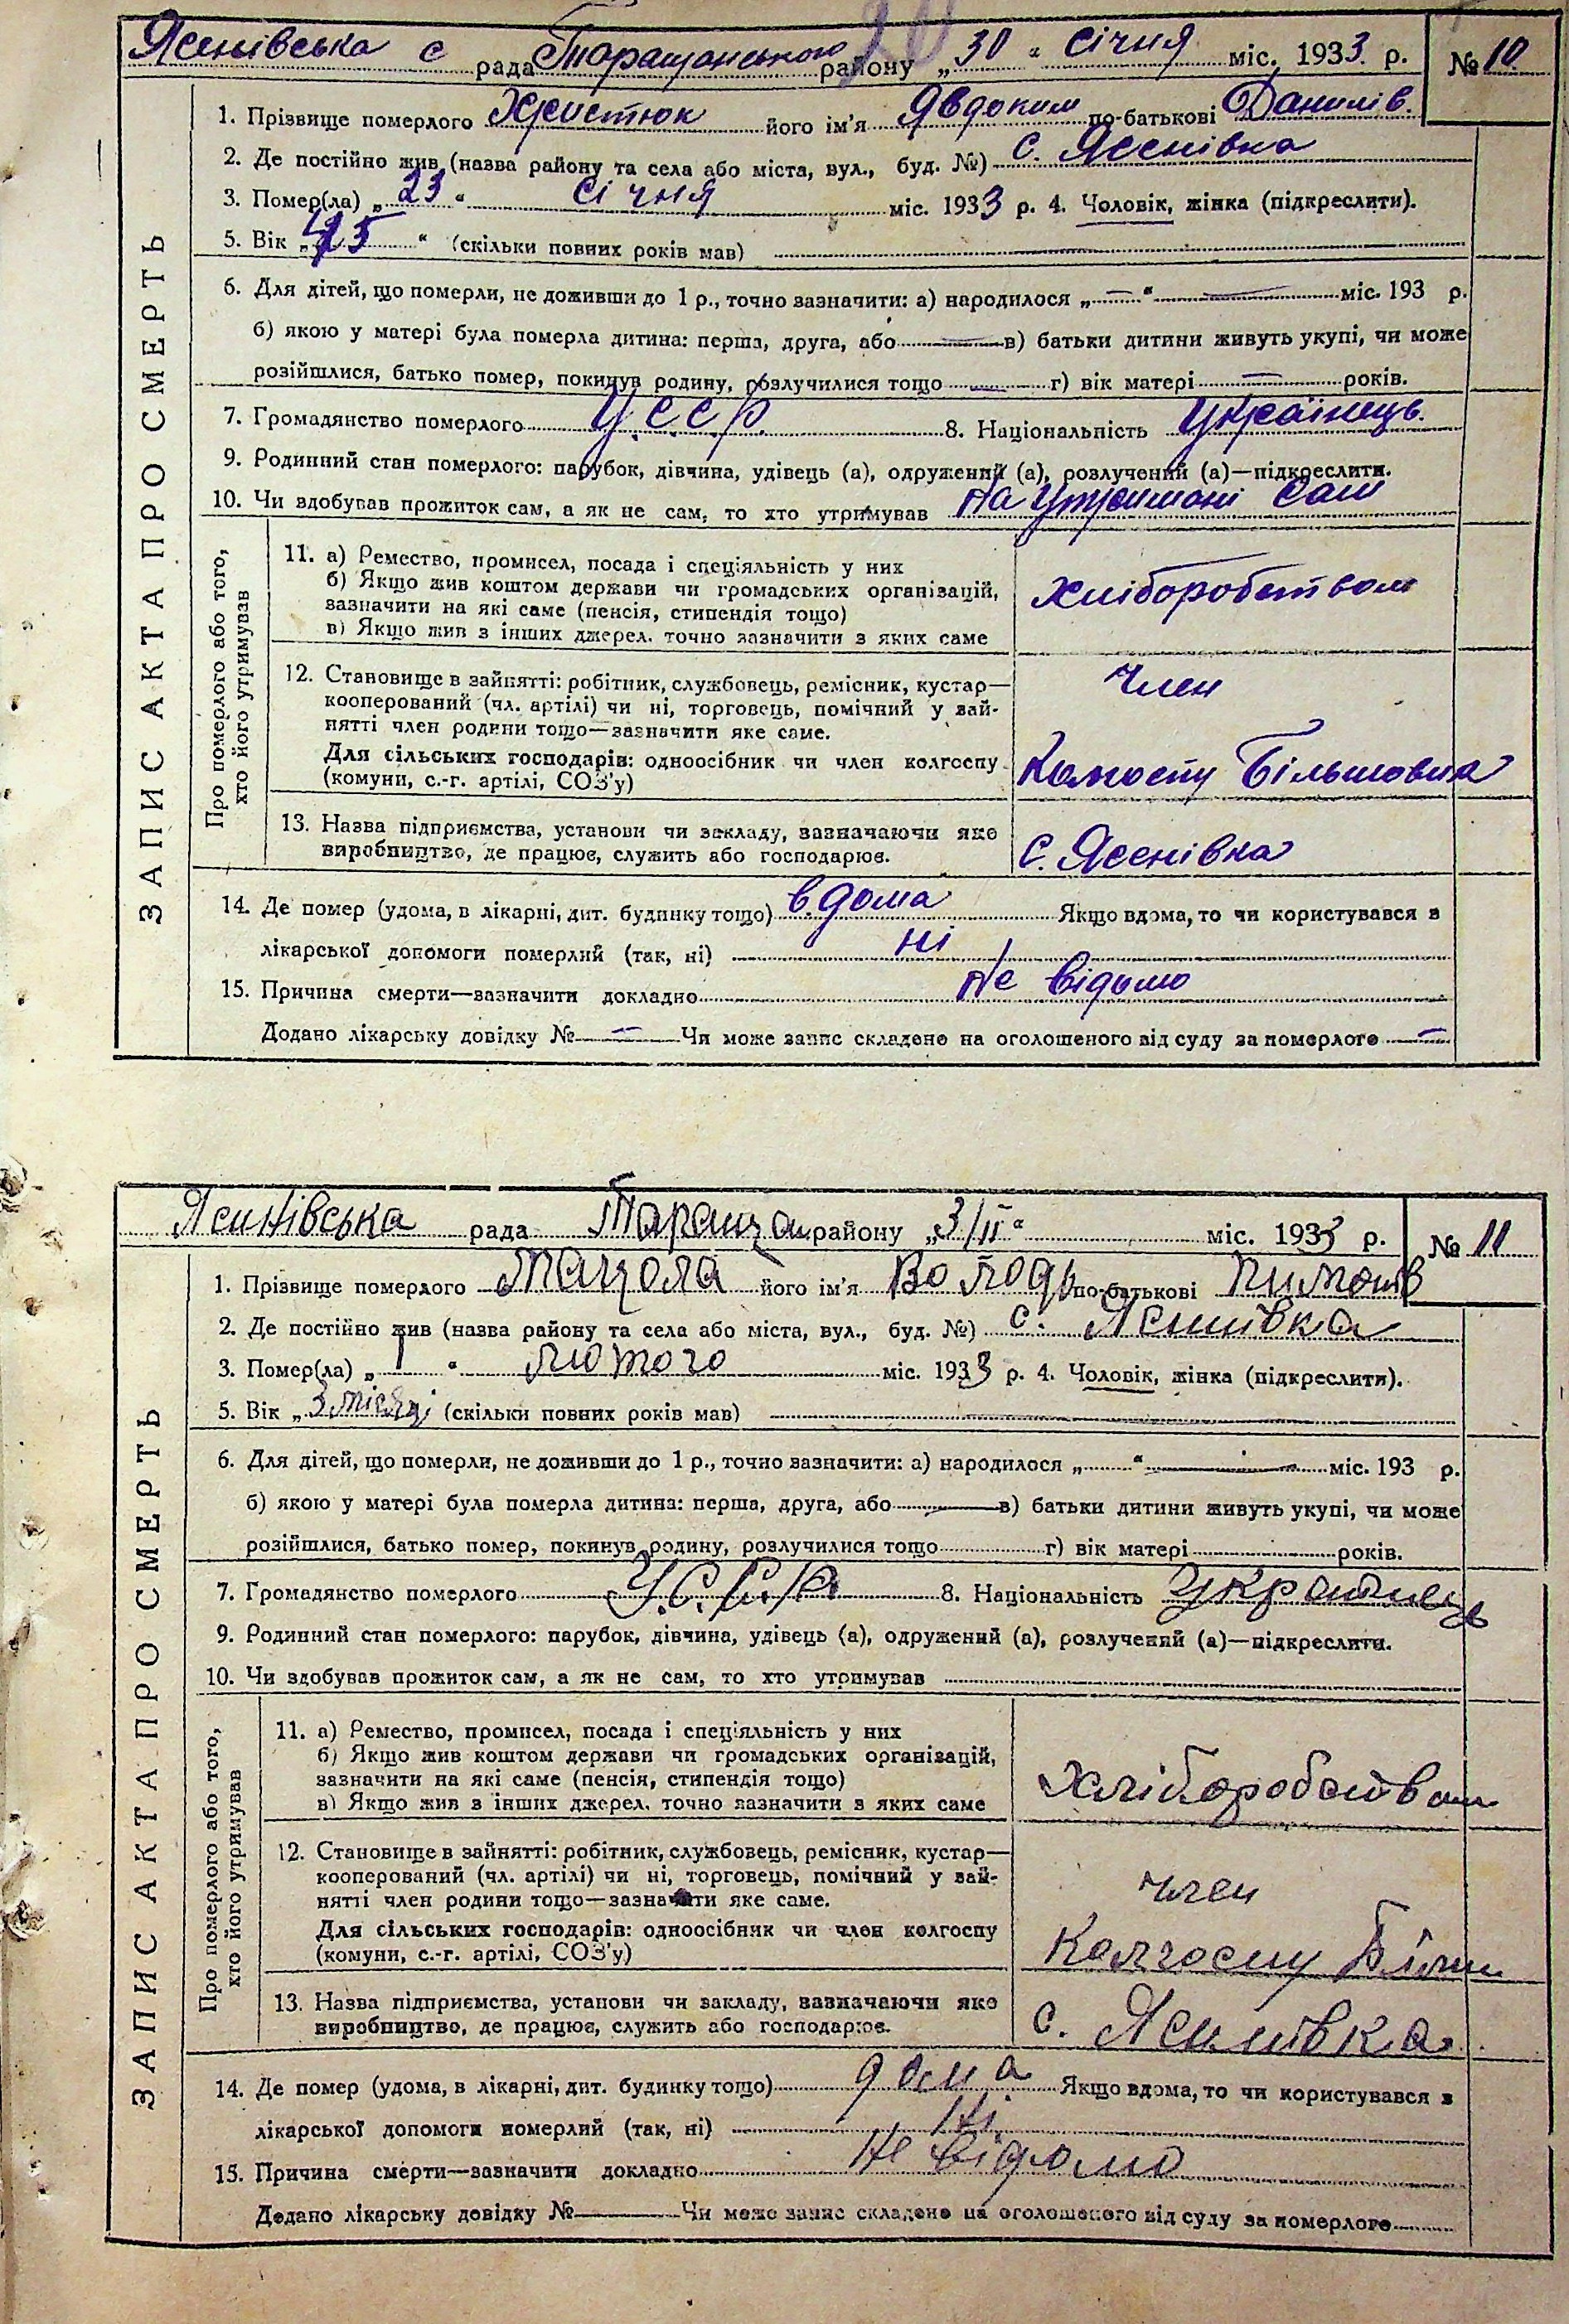 Ясенівська с рада Таращанського району „30“ січня міс. 1933 р. № 10
1. Прізвище померлого Христюк його ім'я Явдоким по-батькові Данилів.
2. Де постійно жив (назва району та села або міста, вул., буд. №) с. Ясенівка
3. Помер(ла) „23“ січня міс. 1933 р. 4. Чоловік, жінка (підкреслити).
5. Вік „45“ (скільки повних років мав)
6. Для дітей, що померли, не доживши до 1 р., точно зазначити: а) народилося „—“ — міс. 193 р.
б) якою у матері була померла дитина: перша, друга, або — в) батьки дитини живуть укупі, чи може
розійшлися, батько помер, покинув родину, розлучилися тощо — г) вік матері — років.
7. Громадянство померлого У.С.С.Р. 8. Національність Українець.
9. Родинний стан померлого: парубок, дівчина, удівець (а), одружений (а), розлучений (а)—підкреслити.
10. Чи здобував прожиток сам, а як не сам, то хто утримував На утримані сам
ЗАПИС АКТА ПРО СМЕРТЬ
Про померлого або того,
хто його утримував
11. а) Ремество, промисел, посада і спеціяльність у них
б) Якщо жив коштом держави чи громадських організацій,
зазначити на які саме (пенсія, стипендія тощо)
в) Якщо жив з інших джерел, точно зазначити з яких саме
хліборобством
12. Становище в зайнятті: робітник, службовець, ремісник, кустар—
кооперований (чл. артілі) чи ні, торговець, помічний у зай-
нятті член родини тощо—зазначити яке саме.
Для сільських господарів: одноосібник чи член колгоспу
(комуни, с.-г. артілі, СОЗ'у)
Член
Колгоспу Більшовик
13. Назва підприємства, установи чи закладу, зазначаючи яке
виробництво, де працює, служить або господарює.
с. Ясенівка
14. Де помер (удома, в лікарні, дит. будинку тощо) вдома Якщо вдома, то чи користувався з
лікарської допомоги померлий (так, ні) ні
15. Причина смерти—зазначити докладно Не відомо
Додано лікарську довідку № — Чи може запис складено на оголошеного від суду за померлого —
Ясинівська рада Тараща району „3/II“ міс. 1933 р. № 11
1. Прізвище померлого його ім'я Володь по-батькові
2. Де постійно жив (назва району та села або міста, вул., буд. №) с. Ясинівка
3. Помер(ла) „1“ лютого міс. 1933 р. 4. Чоловік, жінка (підкреслити).
5. Вік „3 місяці (скільки повних років мав)
6. Для дітей, що померли, не доживши до 1 р., точно зазначити: а) народилося „ “ — міс. 193 р.
б) якою у матері була померла дитина: перша, друга, або — в) батьки дитини живуть укупі, чи може
розійшлися, батько помер, покинув родину, розлучилися тощо г) вік матері років.
7. Громадянство померлого У.С.С.Р. 8. Національність Українець
9. Родинний стан померлого: парубок, дівчина, удівець (а), одружений (а), розлучений (а)—підкреслити.
10. Чи здобував прожиток сам, а як не сам, то хто утримував
ЗАПИС АКТА ПРО СМЕРТЬ
Про померлого або того,
хто його утримував
11. а) Ремество, промисел, посада і спеціяльність у них
б) Якщо жив коштом держави чи громадських організацій,
зазначити на які саме (пенсія, стипендія тощо)
в) Якщо жив з інших джерел, точно зазначити з яких саме
Хліборобством
12. Становище в зайнятті: робітник, службовець, ремісник, кустар—
кооперований (чл. артілі) чи ні, торговець, помічний у зай-
нятті член родини тощо—зазначити яке саме.
Для сільських господарів: одноосібник чи член колгоспу
(комуни, с.-г. артілі, СОЗ'у)
член
Колгоспу Більш
13. Назва підприємства, установи чи закладу, зазначаючи яке
виробництво, де працює, служить або господарює.
с. Ясинівка
14. Де помер (удома, в лікарні, дит. будинку тощо) дома Якщо вдома, то чи користувався з
лікарської допомоги померлий (так, ні) Ні.
15. Причина смерти—зазначити докладно Не відомо
Додано лікарську довідку № Чи може запис складено на оголошеного від суду за померлого